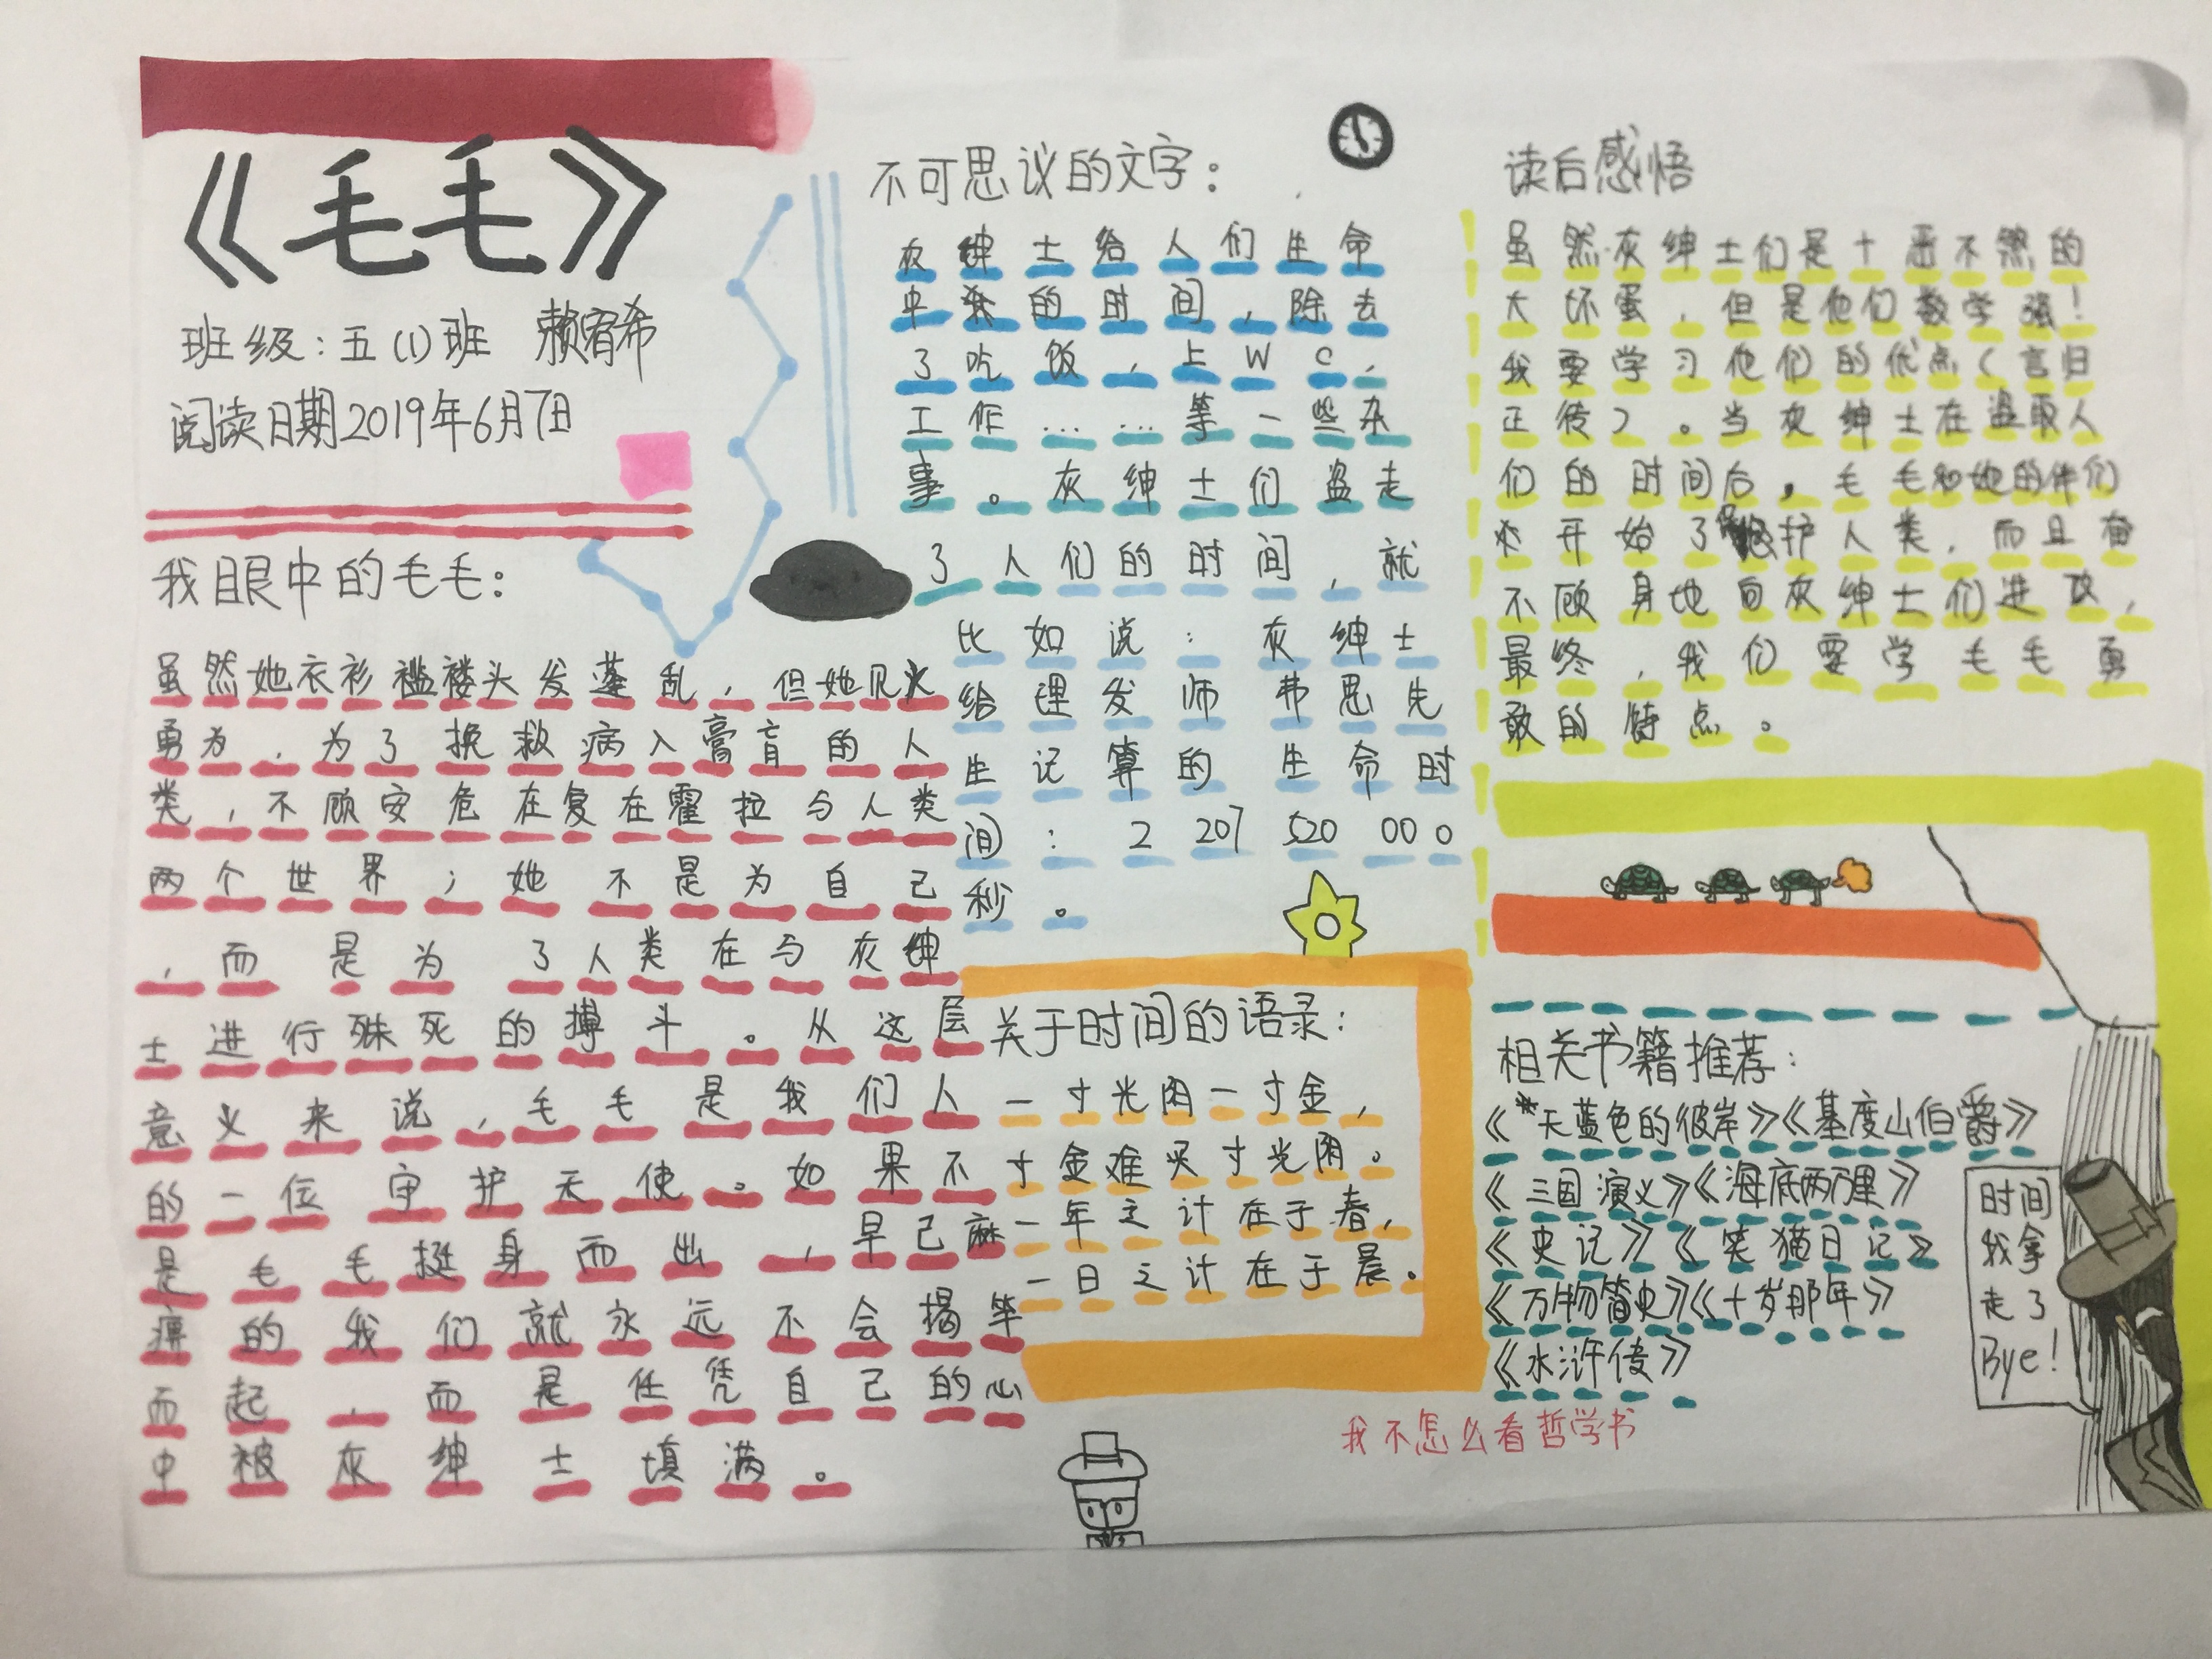 《毛毛》
班级:五(1)班 赖宥希
阅读日期2019年6月7日
我眼中的毛毛:
虽然她衣衫褴褛头发蓬乱,但她见义
勇为,为了挽救病入膏肓的人
类,不顾安危在复在霍拉与人类
两个世界;她不是为自己
,而是为了人类在与灰绅
士进行殊死的搏斗。从这层
意义来说,毛毛是我们人
的一位守护天使。如果不
是毛毛挺身而出,早已麻
痹的我们就永远不会揭竿
而起,而是任凭自己的心
中被灰绅士填满。
不可思议的文字:
灰绅士给人们生命
中 的时间,除去
了吃饭,上WC,
工作……等一些杂
事。灰绅士们盗走
了人们的时间,就
比如说:灰绅士
给理发师弗思先
生记算的生命时
间:2 207 520 000
秒。
关于时间的语录:
一寸光阴一寸金,
寸金难买寸光阴。
一年之计在于春,
一日之计在于晨。
读后感悟
虽然灰绅士们是十恶不然的
大坏蛋,但是他们数学强!
我要学习他们的优点(言归
正传)。当灰绅士在盗取人
们的时间后,毛毛和她的伴们
开始了 护人类,而且奋
不顾身地向灰绅士们进攻,
最终,我们要学毛毛勇
敢的特点。
相关书籍推荐:
《天蓝色的彼岸》《基度山伯爵》
《三国演义》《海底两万里》
《史记》《笑猫日记》
《万物简史》《十岁那年》
《水浒传》
我不怎么看哲学书
时间
我拿
走了
Bye!